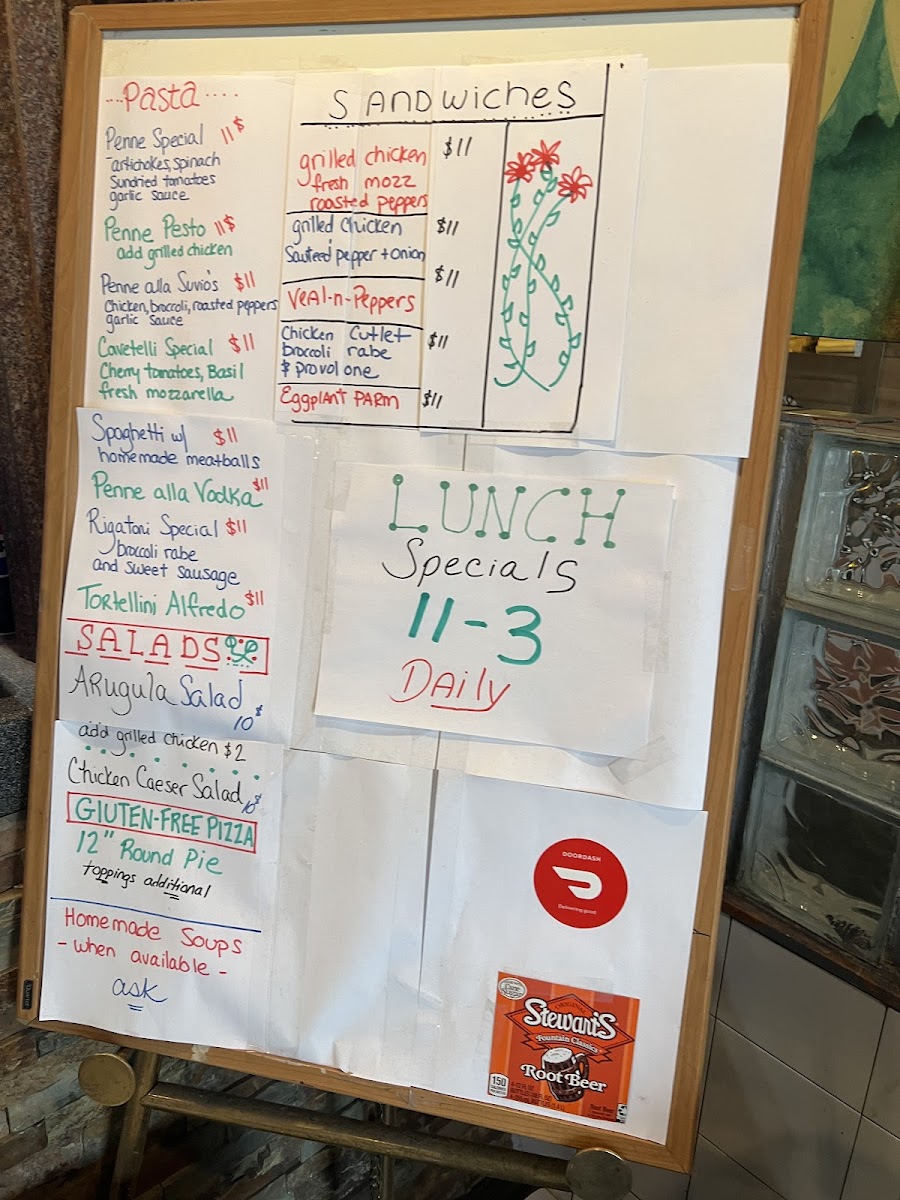 ...Pasta....
Penne Special 11$
-artichokes, spinach
Sundried tomatoes
garlic sauce
Penne Pesto 11$
add grilled chicken
Penne alla Suvio's $11
Chicken, broccoli, roasted peppers
garlic sauce
Cavetelli Special $11
Cherry tomatoes, Basil
fresh mozzarella
Spaghetti w/ $11
homemade meatballs
Penne alla Vodka $11
Rigatoni Special $11
broccoli rabe
and sweet sausage
Tortellini Alfredo $11
SALADS
Arugula Salad
10$
add grilled chicken $2
Chicken Caeser Salad 10$
GLUTEN-FREE PIZZA
12" Round Pie
toppings additional
Homemade Soups
- when available -
ask
SANDWICHES
grilled chicken $11
fresh mozz
roasted peppers
grilled chicken $11
Sauteed pepper + onion
$11
Veal-n-Peppers
Chicken Cutlet $11
broccoli rabe
& provolone
Eggplant PARM $11
LUNCH
Specials
11-3
Daily
DOORDASH
Delivering good
ORIGINAL
Stewart's
Fountain Classics
Root Beer
150
Root Beer